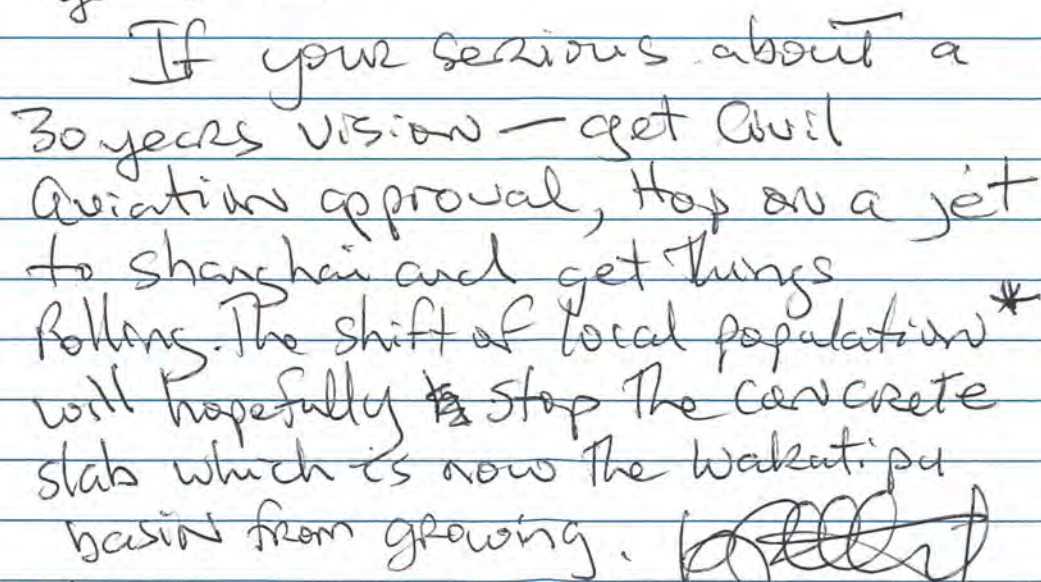 If your serious about a
30 years vision — get Civil
Aviation approval, Hop on a jet
to Shanghai and get things
Rolling. The shift of local population*
will hopefully stop the concrete
slab which is now the Wakatipu
basin from growing.